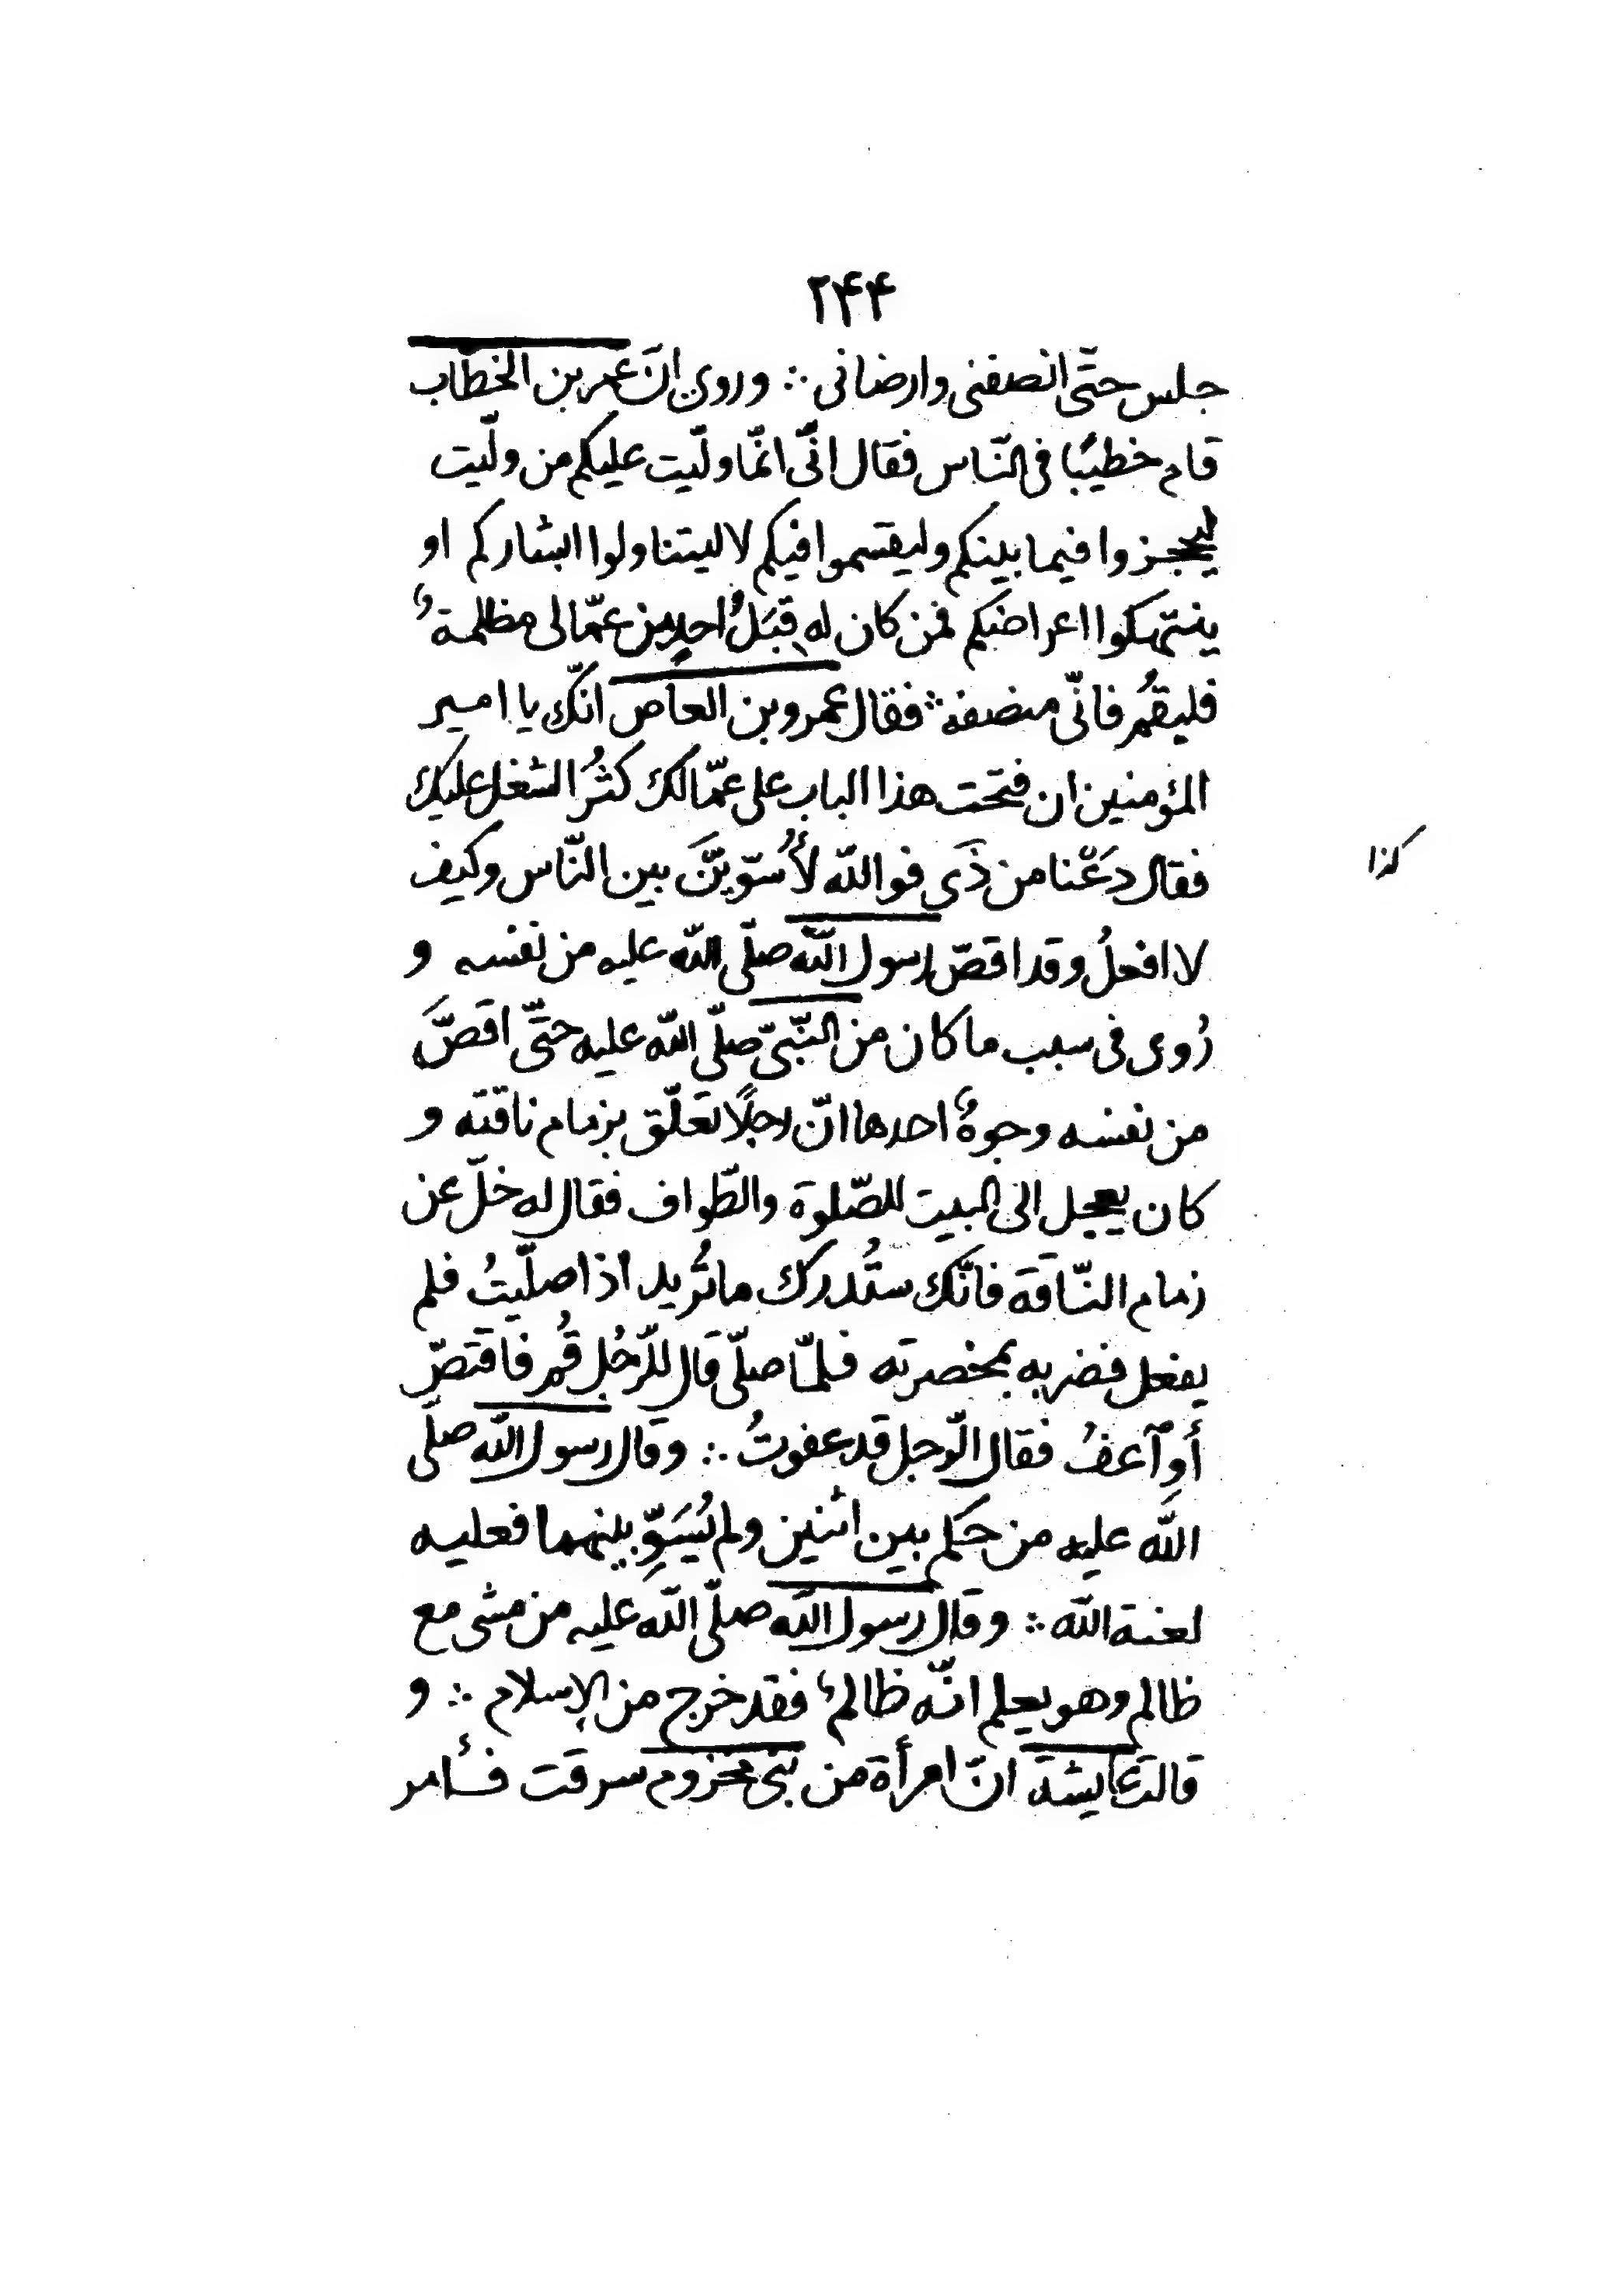 ۲۴۴
جلس حتّى انصفنى وارضانى ∴ وروى انّ عمر بن الخطّاب
قام خطيبًا فى النّاس فقال انّى انّما ولّيت عليكم من ولّيت
ليحجزوا فيما بينكم وليقسموا فيكم لا ليتناولوا ابشاركم او
ينتهكوا اعراضكم فمن كان له قِبَلَ احدٍ من عمّالى مظلمةٌ
فليقُم فانّى منصفه ∴ فقال عمرو بن العاص انّك يا امير
المؤمنين ان فتحت هذا الباب على عمّالك كثُر الشغل عليك
فقال دَعْنا من ذَى فوالله لأُسوّينَّ بين النّاس وكيف
كذا
لا افعلُ وقد اقصّ رسول الله صلّى الله عليه من نفسه و
رُوى فى سبب ما كان من النّبىّ صلّى الله عليه حتّى اقصَّ
من نفسه وجوهٌ احدها انّ رجلًا تعَلّق بزمام ناقته و
كان يعجل الى البيت للصّلوة والطّواف فقال له خلّ عن
زمام النّاقة فانّك ستُدرك ما تُريد اذا صلّيتُ فلم
يفعل فضربه بمخصرته فلمّا صلّى قال للرّجُل قُم فاقتصّ
أوِ ٱعفُ فقال الرّجل قد عفوتُ ∴ وقال رسول الله صلّى
الله عليه من حكم بين اثنين ولم يُسَوِّ بينهما فعليه
لعنة الله ∴ وقال رسول الله صلّى الله عليه من مشى مع
ظالم وهو يعلم انّه ظالمٌ فقد خرج من الإسلام ∴ و
قالت عايشة انّ امرأة من بنى مخزوم سرقت فأمر